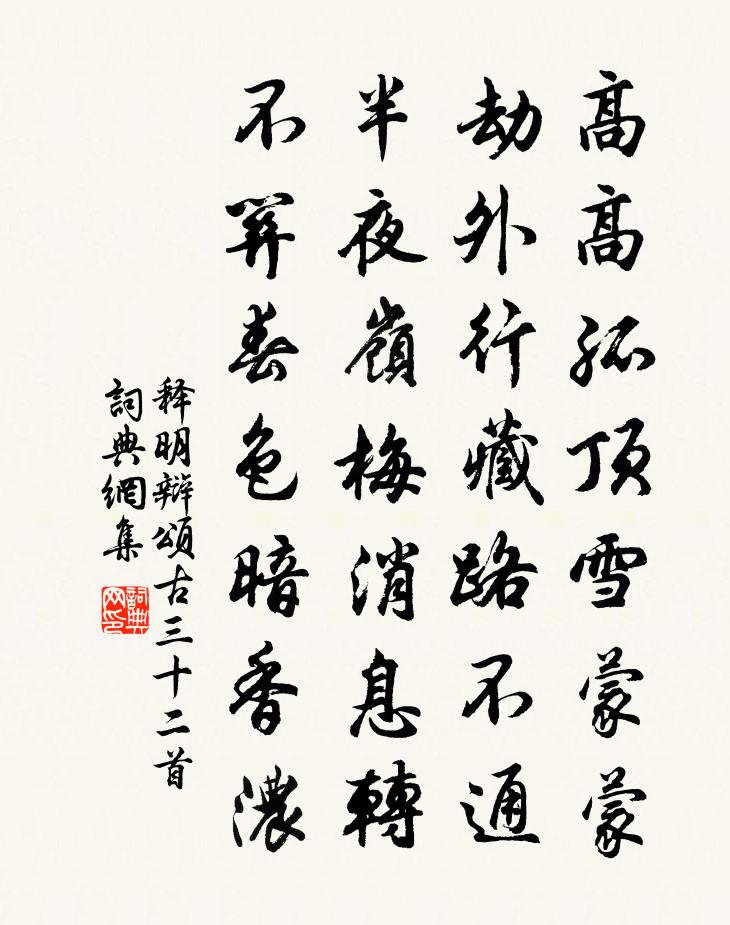 高高孤頂雪蒙蒙
劫外行藏路不通
半夜嶺梅消息轉
不萼春色暗香濃
释明辯頌古三十二首
詞典網集
詞典网印